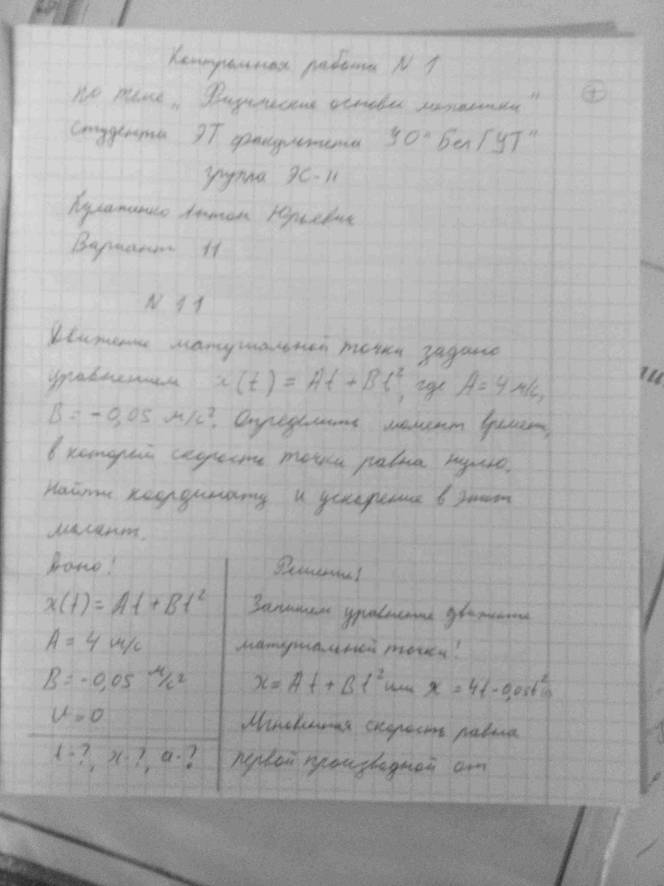 Контрольная работа N 1
по теме „Физические основы механики"
студента ЭТ факультета УО "БелГУТ"
группа ЭС-11
Антон Юрьевич
Вариант 11
N 11
Движение материальной точки задано
уравнением x(t) = At + Bt², где A = 4 м/с,
B = -0,05 м/с². Определить момент времени,
в который скорость точки равна нулю.
Найти координату и ускорение в этот
момент.
Дано:
x(t) = At + Bt²
A = 4 м/с
B = -0,05 м/с²
v = 0
t-?, x-?, a-?
Решение:
Запишем уравнение движения
материальной точки:
x = At + Bt² или x = 4t - 0,05t²
Мгновенная скорость равна
первой производной от